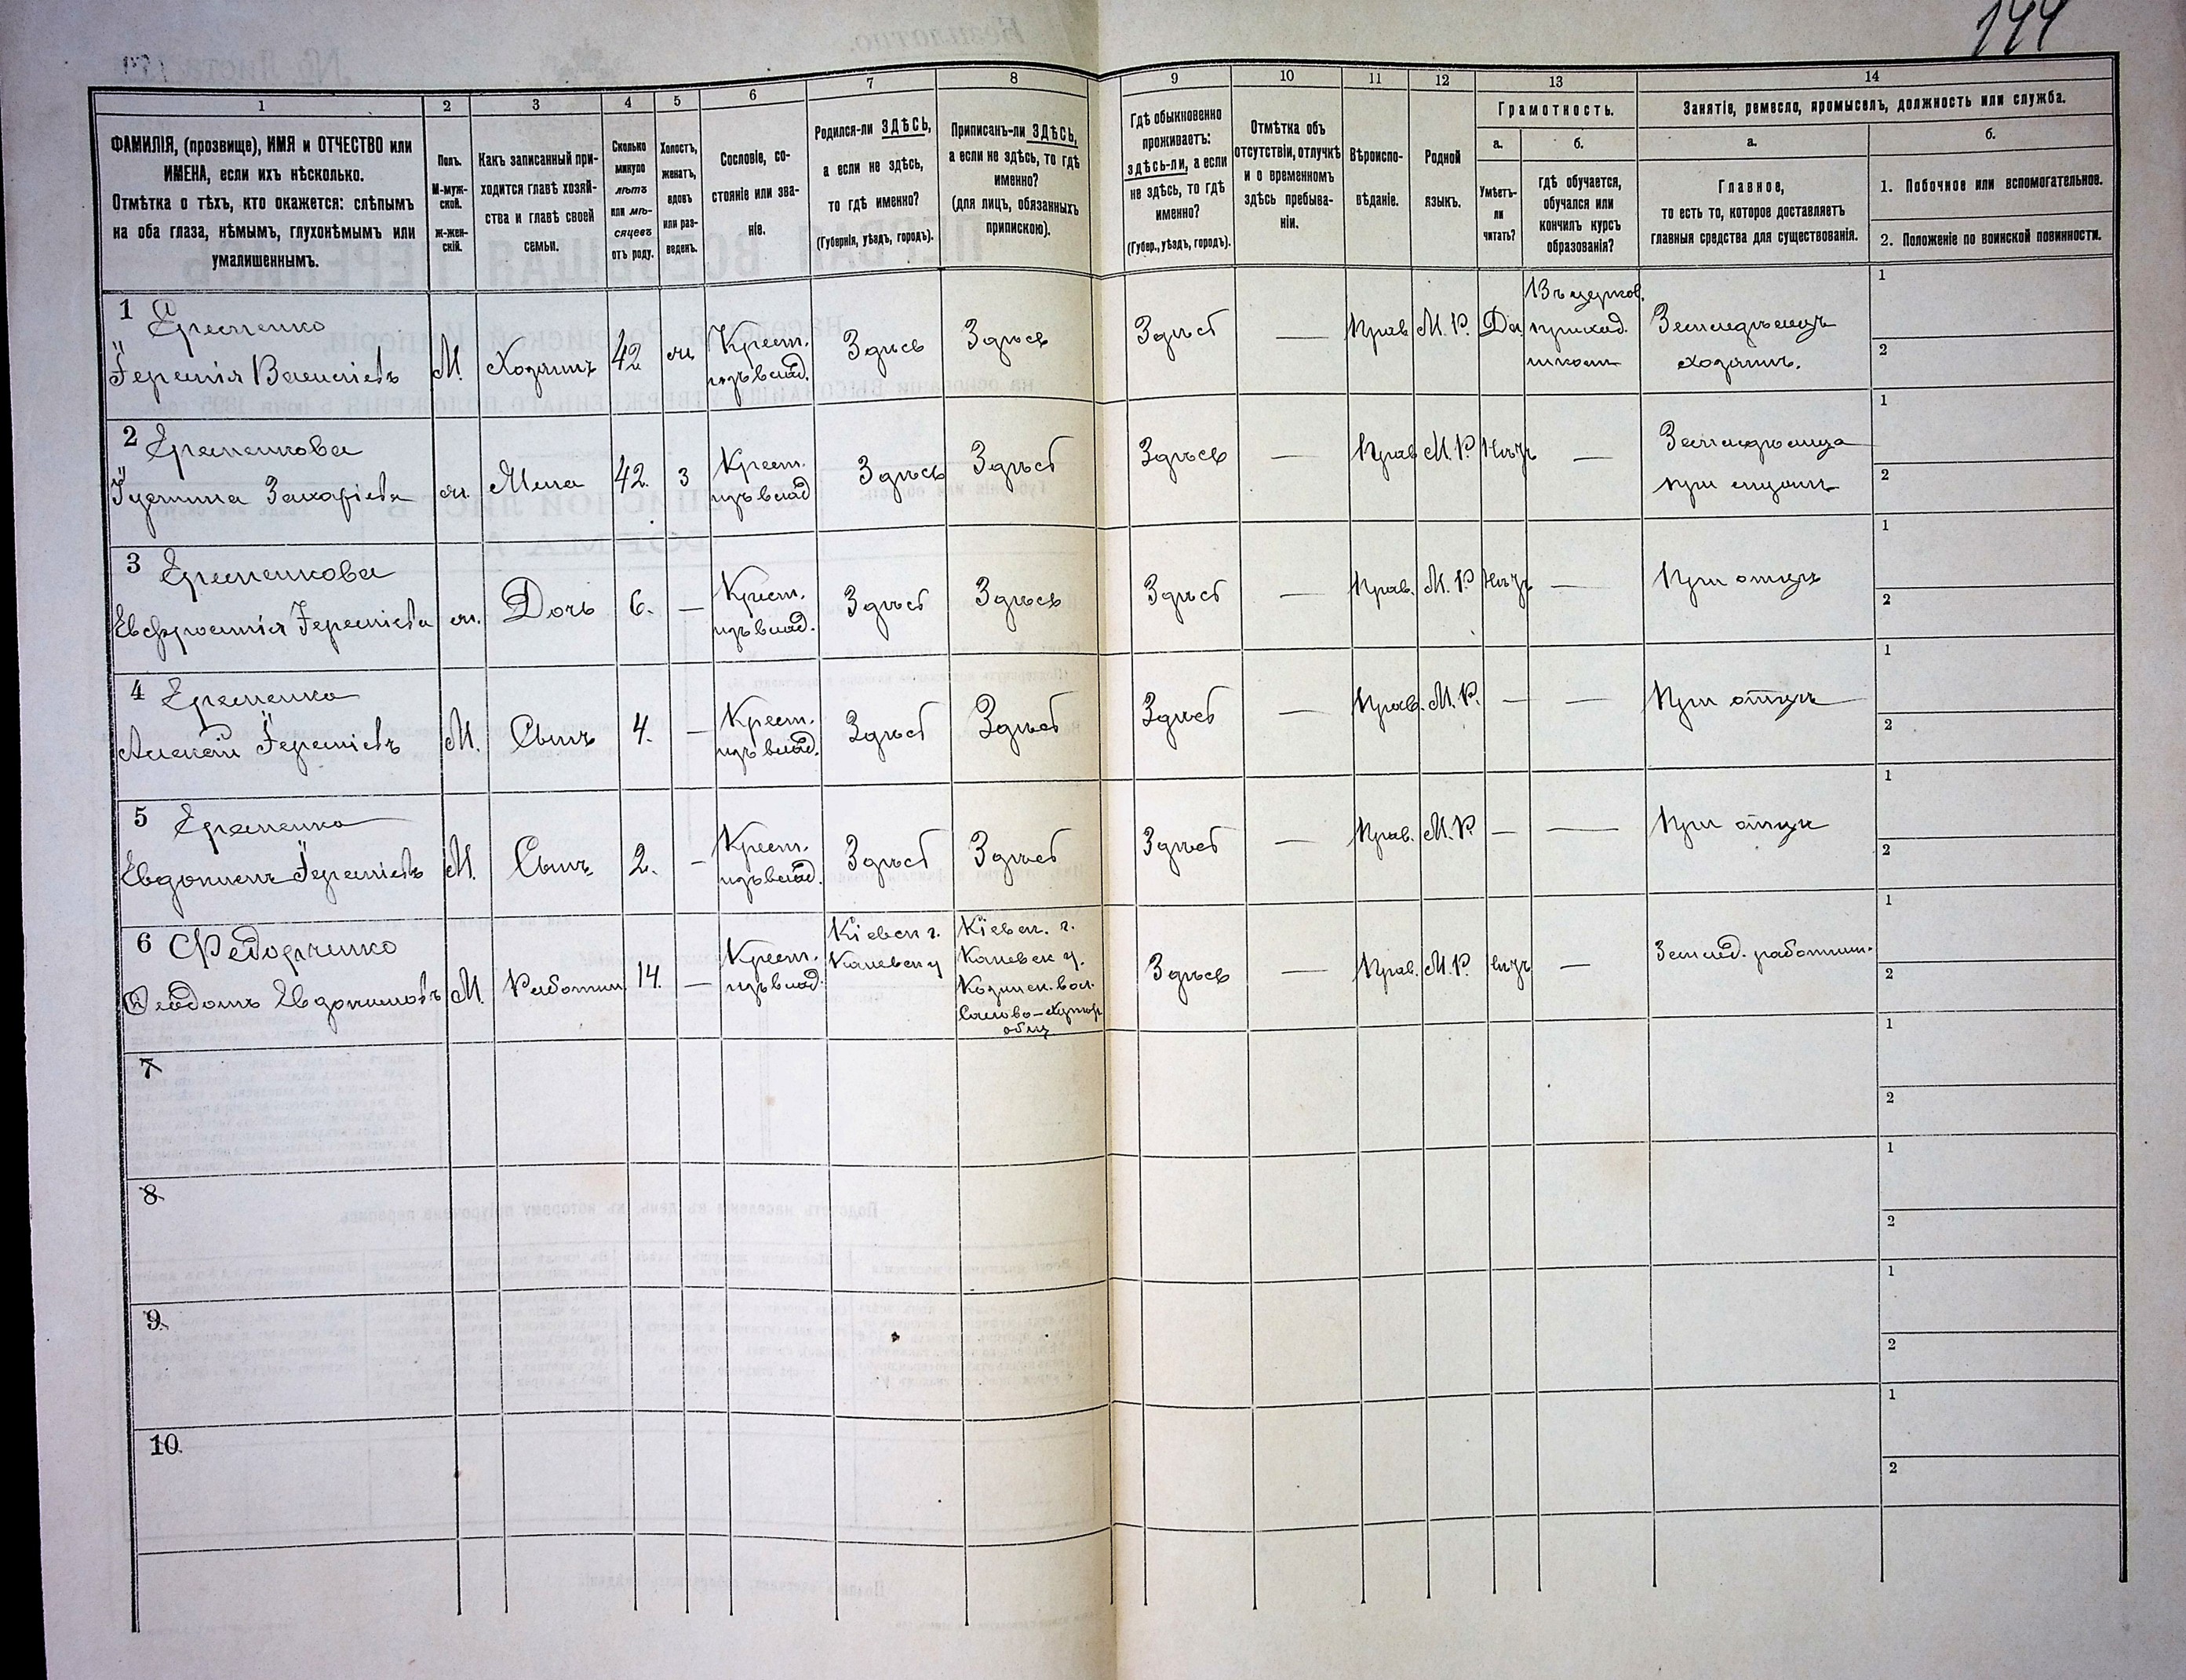 144
1
2
3
4
5
6
7
8
9
10
11
12
13
14
ФАМИЛІЯ, (прозвище), ИМЯ и ОТЧЕСТВО или
ИМЕНА, если ихъ нѣсколько.
Отмѣтка о тѣхъ, кто окажется: слѣпымъ
на оба глаза, нѣмымъ, глухонѣмымъ или
умалишеннымъ.
Полъ.
М-муж-
ской.
Ж-жен-
скій.
Какъ записанный при-
ходится главѣ хозяй-
ства и главѣ своей
семьи.
Сколько
минуло
лѣтъ
или мѣ-
сяцевъ
отъ роду.
Холостъ,
женатъ,
вдовъ
или раз-
веденъ.
Сословіе, со-
стояніе или зва-
ніе.
Родился-ли ЗДѢСЬ,
а если не здѣсь,
то гдѣ именно?
(Губернія, уѣздъ, городъ).
Приписанъ-ли ЗДѢСЬ,
а если не здѣсь, то гдѣ
именно?
(для лицъ, обязанныхъ
припискою).
Гдѣ обыкновенно
проживаетъ:
здѣсь-ли, а если
не здѣсь, то гдѣ
именно?
(Губер., уѣздъ, городъ).
Отмѣтка объ
отсутствіи, отлучкѣ
и о временномъ
здѣсь пребыва-
ніи.
Вѣроиспо-
вѣданіе.
Родной
языкъ.
Грамотность.
а.
Умѣетъ-
ли
читать?
б.
гдѣ обучается,
обучался или
кончилъ курсъ
образованія?
Занятіе, ремесло, промыселъ, должность или служба.
а.
Главное,
то есть то, которое доставляетъ
главныя средства для существованія.
б.
1. Побочное или вспомогательное.
2. Положеніе по воинской повинности.
1 Еременко
Іеремія Василіевъ
М.
Хозяинъ
42
ж
Крест.
изъ влад.
Здѣсь
Здѣсь
Здѣсь
—
Прав
М. Р.
Да
Въ церков.
приход.
школѣ
Земледѣлецъ
хозяинъ.
1
2
2 Еременкова
Іустина Захаріева
ж.
Жена
42.
3
Крест.
изъ влад
Здѣсь
Здѣсь
Здѣсь
—
Прав
М. Р.
Нѣтъ
—
Земледѣлица
при
1
2
3 Еременкова
Евфросинія Іереміева
ж.
Дочь
6.
—
Крест.
изъ влад.
Здѣсь
Здѣсь
Здѣсь
—
Прав.
М. Р
Нѣтъ
—
При отцѣ
1
2
4 Еременко
Алексій Іереміевъ
М.
Сынъ
4.
—
Крест.
изъ влад.
Здѣсь
Здѣсь
Здѣсь
—
Прав.
М. Р.
—
—
При отцѣ
1
2
5 Еременко
Евдокимъ Іереміевъ
М.
Сынъ
2.
—
Крест.
изъ влад.
Здѣсь
Здѣсь
Здѣсь
—
Прав.
М. Р.
—
—
При отцѣ
1
2
6 Федорченко
Евдокимовъ
М.
Работник
14.
—
Крест.
изъ влад.
Кіевск г.
Каневск у
Кіевск. г.
Каневск у.
Козинск. вол.
общ
Здѣсь
—
Прав.
М. Р.
Нѣтъ
—
Землед. работник.
1
2
7
1
2
8
1
2
9
1
2
10
1
2